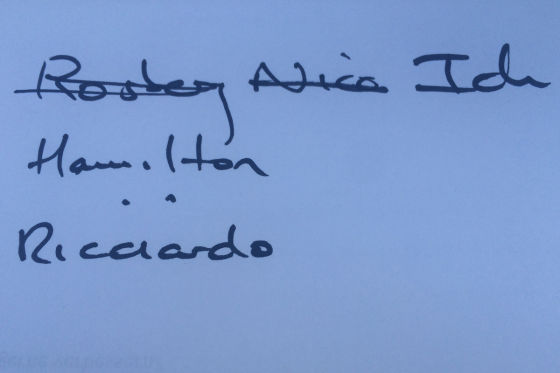 Rosberg Nico Ich
Hamilton
Ricciardo